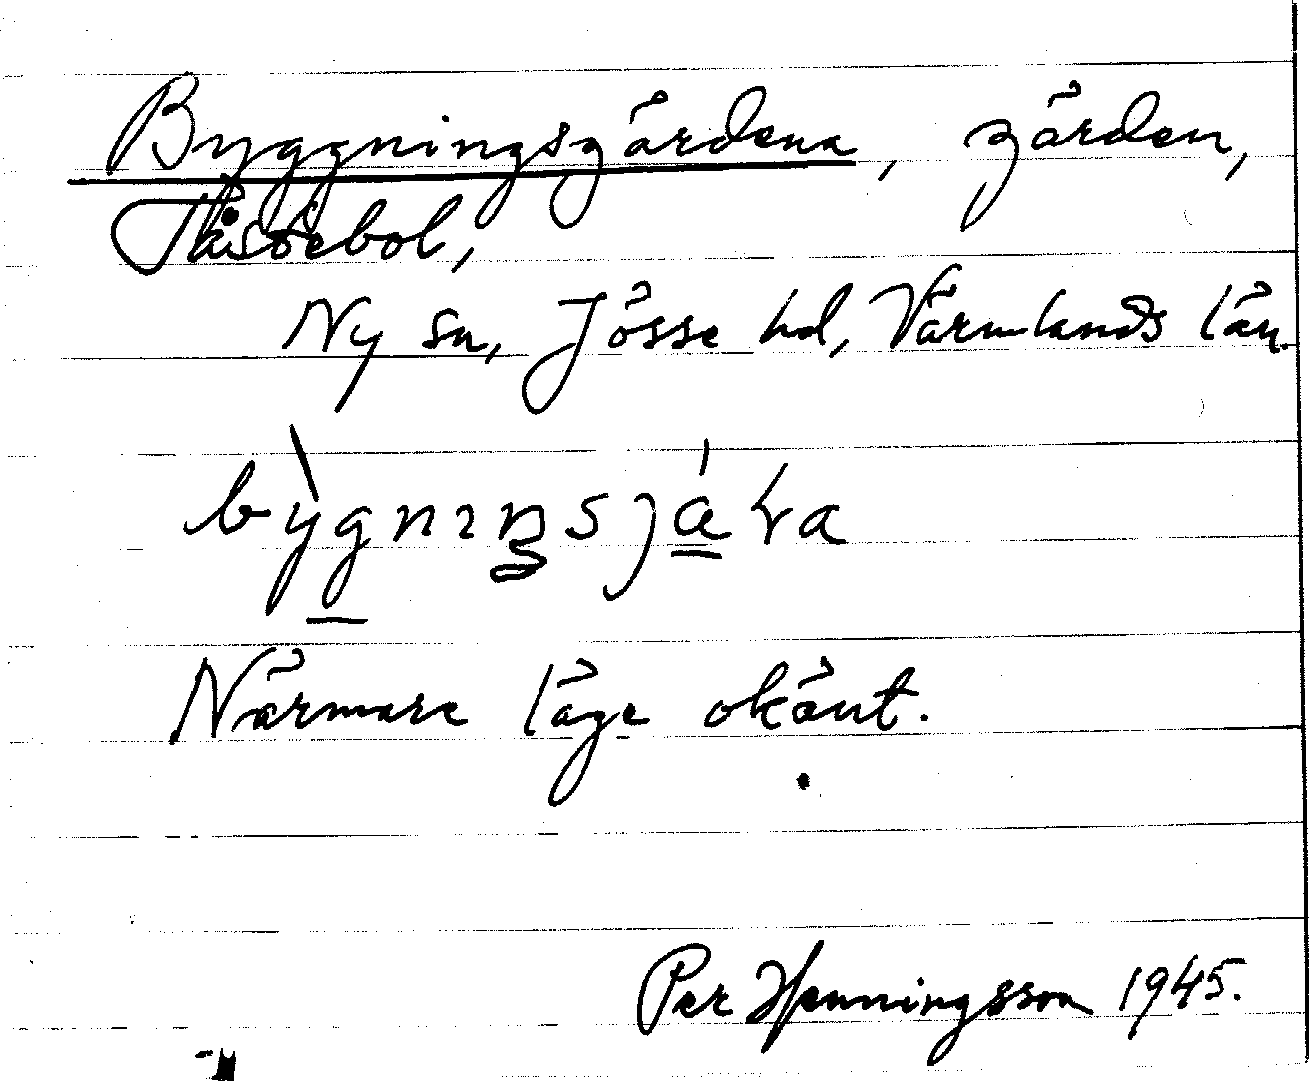 Byggningsgärdena, gärden,
Ny sn, Jösse hd, Värmlands län.
bỳgnıŋsjáɽa
Närmare läge okänt.
Per Henningsson 1945.